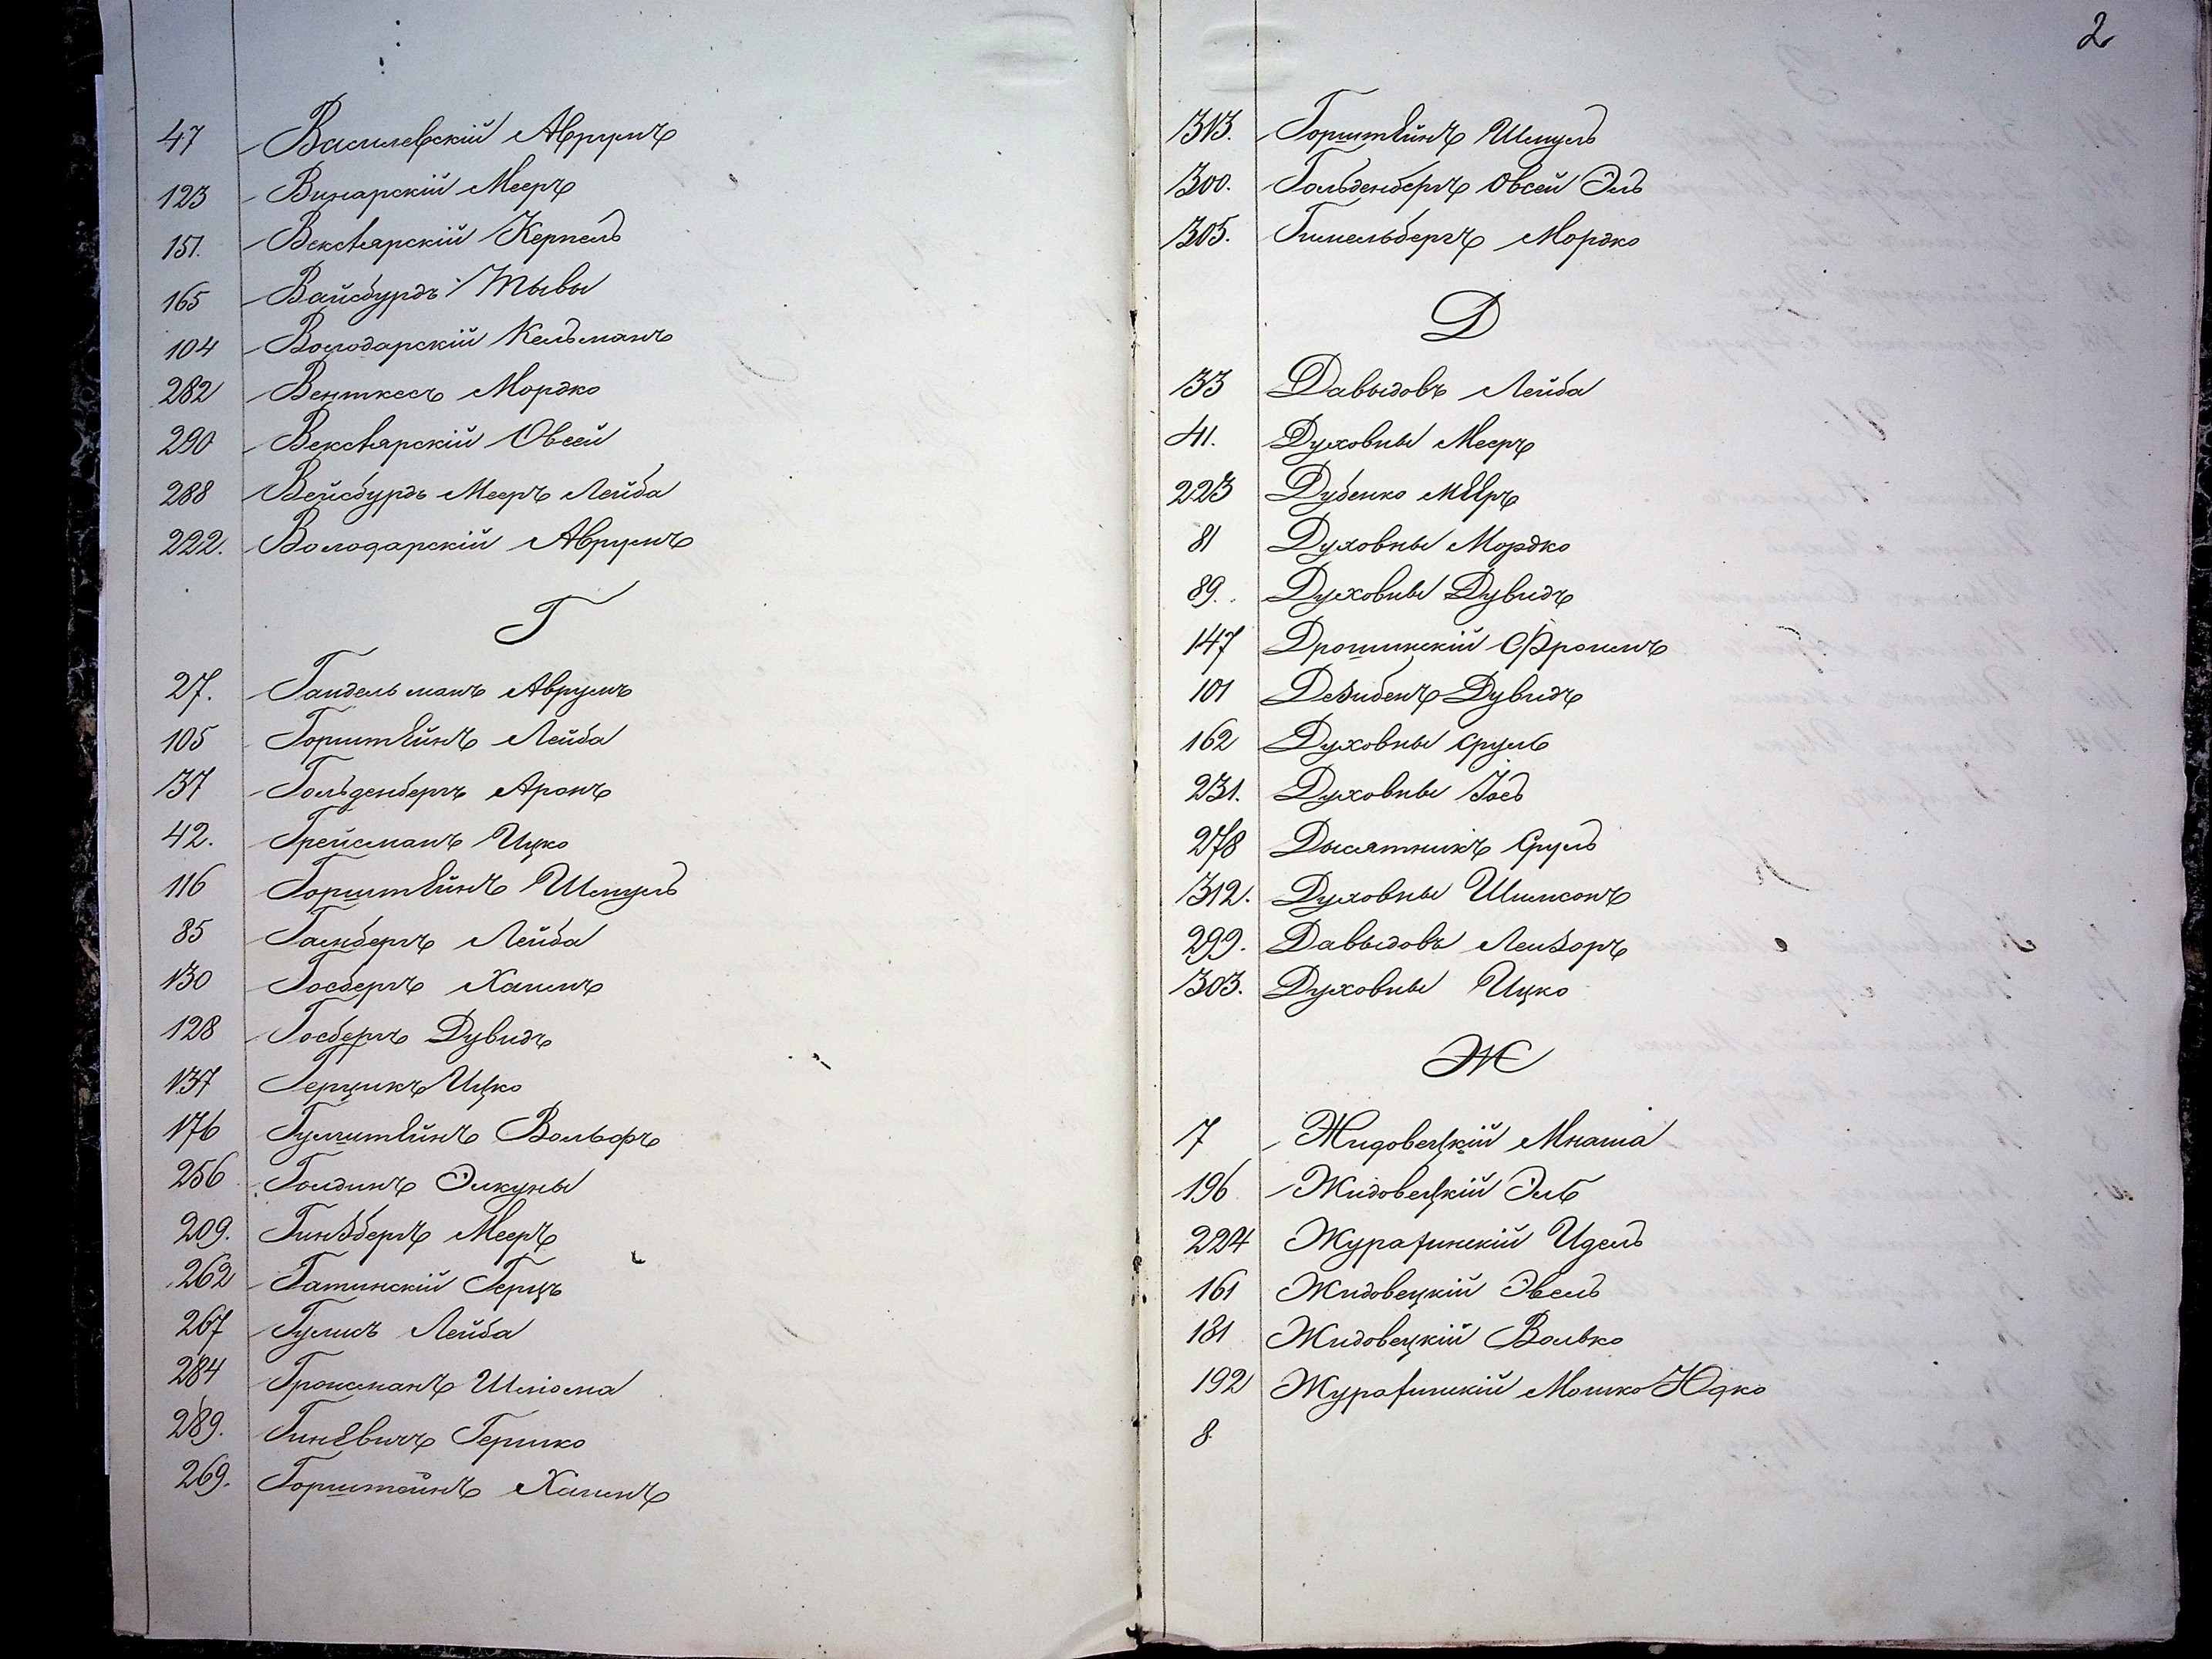 47 Василевскій Аврумъ
123 Винарскій Мееръ
151. Векслярскій Керпель
165 Вайсбурдъ Тывы
104 Володарскій Кельманъ
282 Венткесъ Мордко
290 Векслярскій Овсей
288 Вейсбурдъ Мееръ Лейба
222. Володарскій Аврумъ
Г
27. Гандельманъ Аврумъ
105 Горштейнъ Лейба
37 Гольденбергъ Аронъ
42. Грейсманъ Ицко
116 Горштейнъ Шмуль
85 Гамбергъ Лейба
130 Госбергъ Хаимъ
128 Госбергъ Дувидъ
137 Герцикъ Ицко
176 Гумштейнъ Вольфъ
256 Голдинъ Элкуны
209. Гинзбергъ Мееръ
262 Гатинскій Герцъ
267 Гулисъ Лейба
284 Гройсманъ Шліома
289. Гиневичъ Гершко
269. Горштейнъ Хаимъ
2
313. Горштейнъ Шмуль
300. Гольденбергъ Овсей Эль
305. Гимельбергъ Мордко
Д
33 Давыдовъ Лейба
41. Духовны Мееръ
223 Дубенко Мееръ
81 Духовны Мордко
89. Духовны Дувидъ
147 Дрошинскій Фроимъ
101 Дезибенъ Дувидъ
162 Духовны Сруль
231. Духовны Іось
278 Дысятникъ Сруль
312. Духовны Шимсонъ
299. Давыдовъ Лейзоръ
303. Духовны Ицко
Ж
7 Жидовецкій Мнаша
196 Жидовецкій Эль
224 Журафинскій Идель
161 Жидовецкій Эвель
181 Жидовецкій Волько
192 Журафинскій Мошко Юдко
8